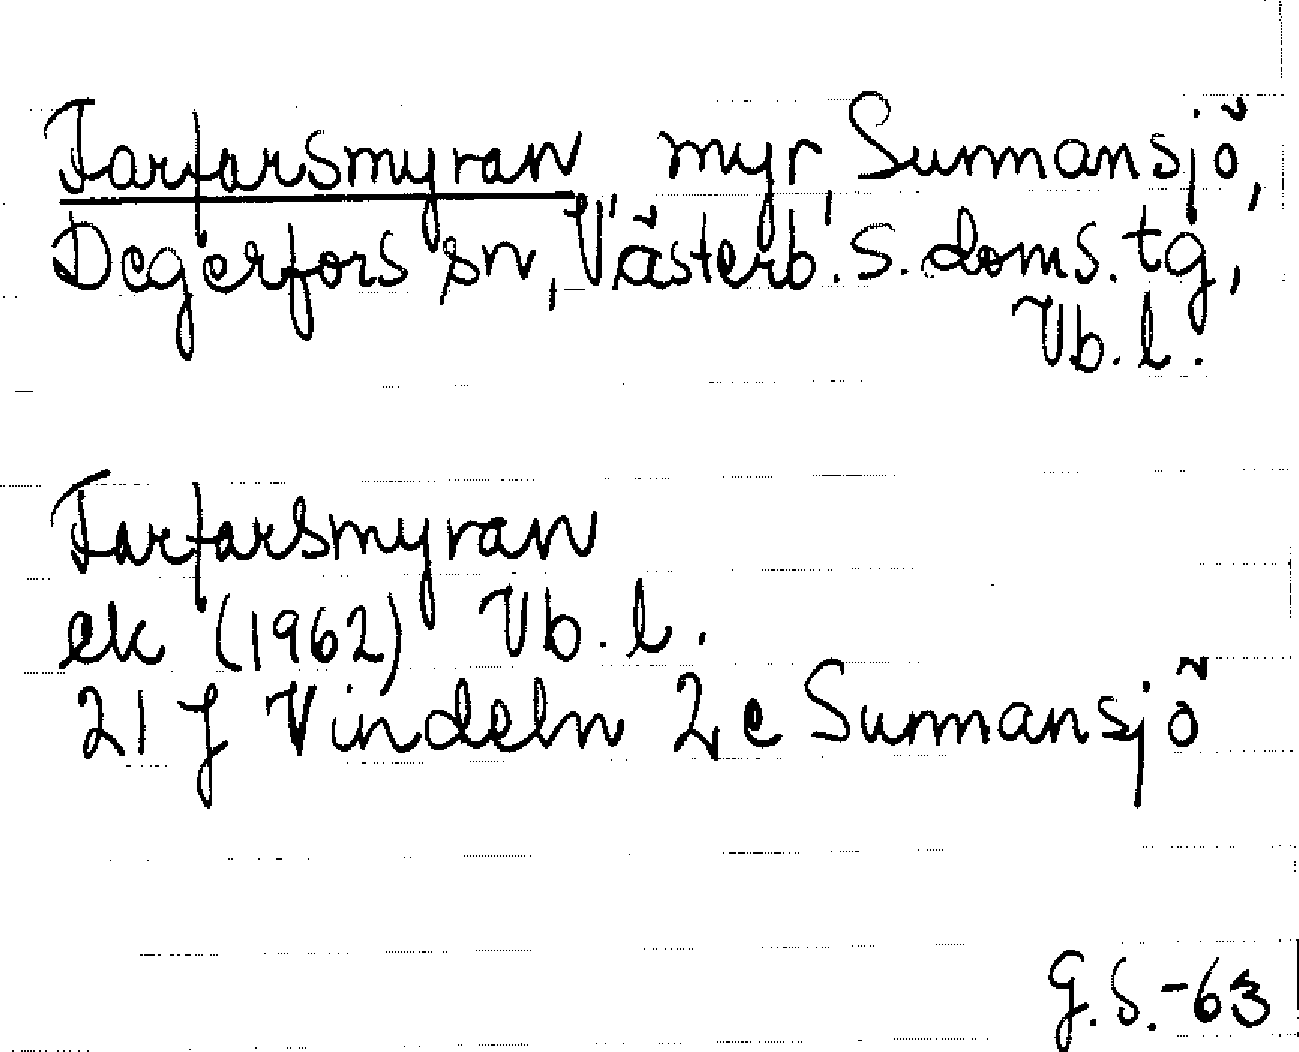 Farfarsmyran myr, Surmansjö,
Degerfors sn, Västerb. s. doms. tg,
Vb. l.
Farfarsmyran
ek (1962) Vb. l.
21 J Vindeln 2 c Surmansjö
G.S.-63